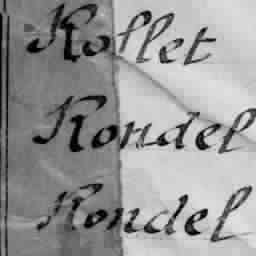 Rollet
Rondel
Rondel